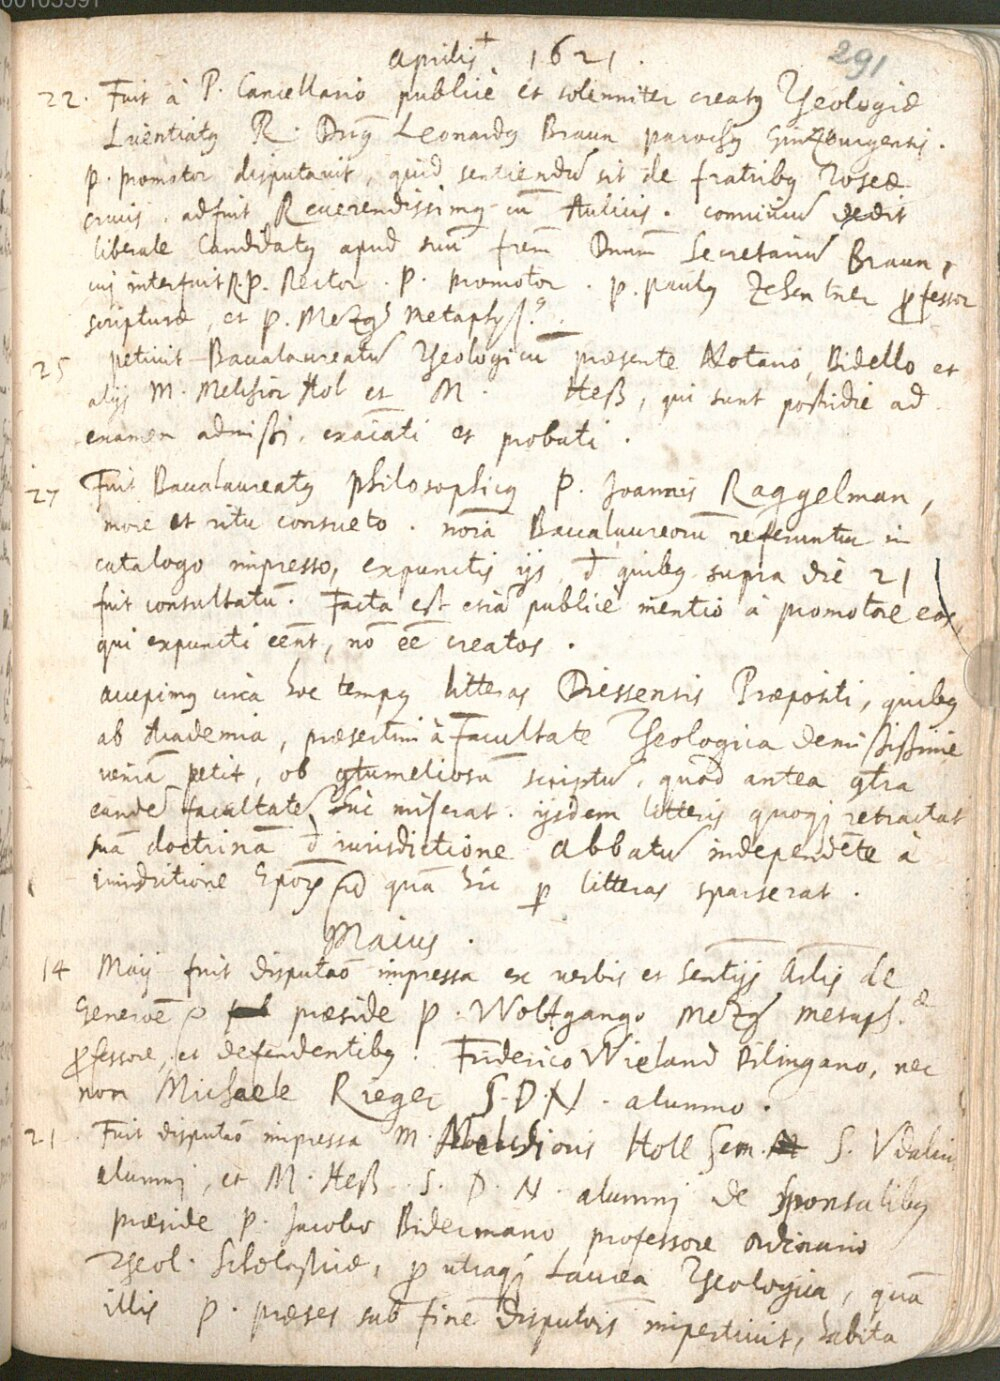 00105591
291
Aprilis 1621.
22. Fuit à P. Cancellario publicè et solenniter creatꝰ Theologiæ
Licentiatꝰ R. Dnꝰ Leonardꝰ Braun parochꝰ Gintzburgensis.
P. promotor disputavit, quid sentiendū sit de fratribꝰ roseæ
crucis. adfuit Reuerendissimꝰ cū Aulicis. conuiuiū dedit
liberale Candidatꝰ apud suū frem̄ Dnum̄ Secretariū Braun,
cui interfuit R.P. Rector. P. promotor. P. Paulꝰ Zehentner ꝓfessor
scripturæ, et P. Mezg̃ Metaphys.
25 petiuit Baccalaureatū Theologicū præsente Notario, Bidello et
alijs M. Melchior Hol et M. Heß, qui sunt postridie ad
examen admissi, exaīati et probati.
27 Fuit Baccalaureatꝰ philosophicꝰ P. Joannis Raggelman,
more et ritu consueto. noīa Baccalaureorū referuntur in
catalogo impresso, expunctis ijs, đ quibꝰ supra die 21
fuit consultatū. Facta est etiā publicè mentio à promotore eos
qui expuncti eēnt, nō eē creatos.
accepimꝰ circa hoc tempꝰ litteras Diessensis Præpositi, quibꝰ
ab Academia, præsertim à Facultate Theologica demississimè
veniā petit, ob ꝯtumeliosū scriptū, quod antea ꝯtra
eandē facultatē huc miserat. ijsdem litteris quoqꝫ retractat
suā doctrinā đ iurisdictione Abbatū independēte à
iurisdictione Epoꝝ quā hic ꝑ litteras sparserat.
Maius.
14 Maij fuit disputaō impressa ex verbis et sentijs Arlis de
Generōe præside P. Wolfgango Mezg̃ metaph.æ
ꝓfessore, et defendentibꝰ Friderico Wieland Dilingano, nec
non Michaele Rieger S.D.N. alumno.
21. Fuit disputaō impressa M. Melchioris Holl Sem. S. Vdalrici
alumni, et M. Heß. S. D. N. alumni de Sponsalibꝰ
præside P. Jacobo Bidermano professore ordinario
Theol. Scholasticæ, ꝓ utraqꝫ Laurea Theologica, quā
illis P. præses sub finē disputōis impertiuit, habita